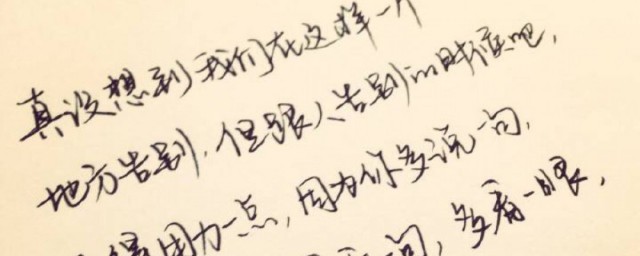 真没想到我们在这样一个
地方告别,但跟人告别的时候吧,
得用力一点,因为你多说一句,
一句,多看一眼,